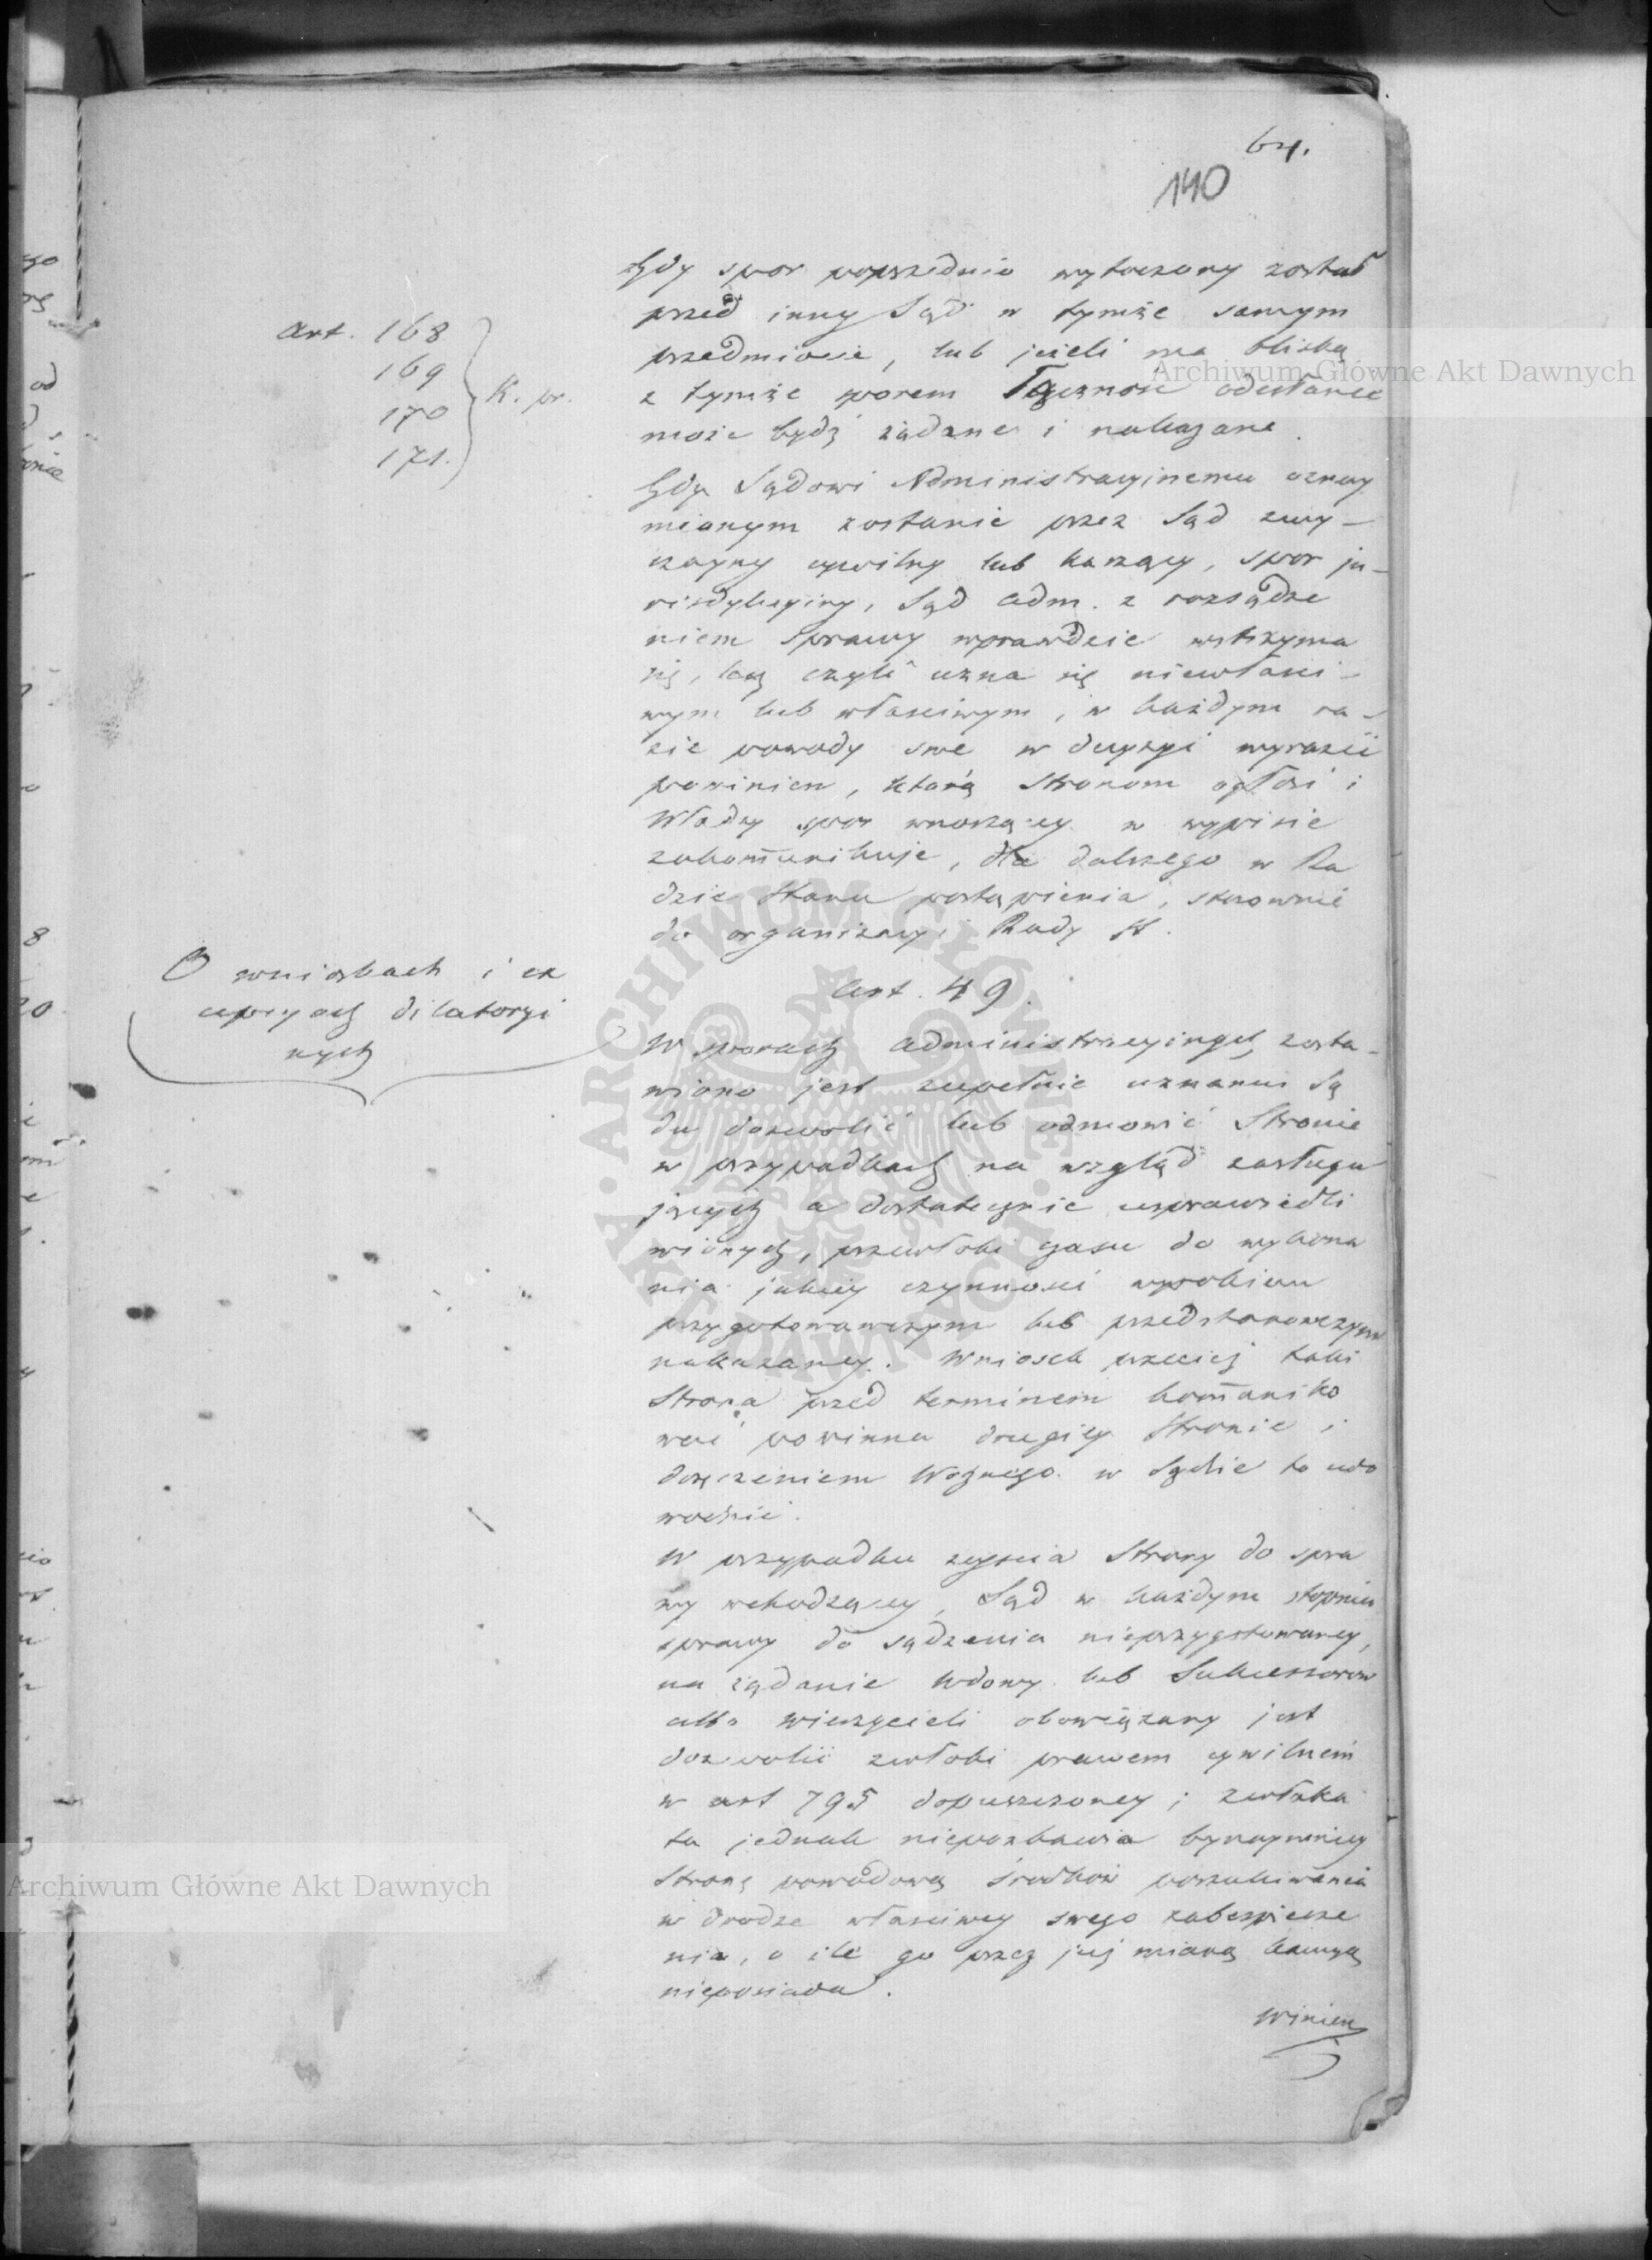 64.
140
Gdy spor poprzednio wytoczony został
przed inny Sąd w tymże samym
przedmiocie, lub jeżeli ma bliską
z tymże sporem łączność odesłanie
może bydź żądane i nakazane.
art. 168
169
170
171.
K. pr.
Gdy Sądowi Administracyjnemu oznay
mionym zostanie przez Sąd zwy-
czayny cywilny lub karzący, spor ju-
risdykcyiny, Sąd adm. z rozsądze
niem sprawy wprawdzie wstrzyma
się, lecz czyli uzna się niewłaści-
wym lub właściwym, w każdym ra-
zie powody swe w decyzyi wyrazić
powinien, którą Stronom ogłosi i
Władzy spor wnoszącey w wypisie
zakom̄unikuje, dla dalszego w Ra
dzie Stanu postąpienia, stosownie
do organizacyi Rady St.
Art. 49.
O wnioskach i ex
cepcyach dilatoryi
nych
W sporach administracyinych zosta-
wiono jest zupełnie uznaniu Są
du dozwolić lub odmowić Stronie
w przypadkach na wzgląd zasługu
jących a dostatecznie usprawiedli
wionych, przewłoki czasu do wykona
nia jakiey czynności wyrokiem
przygotowawczym lub przedstanowczym
nakazaney. Wniosek przecież taki
Strona przed terminem kom̄uniko
wać powinna drugiey Stronie i
doręczeniem Woznego w Sądzie to udo
wodnić.
W przypadku zejścia Strony do spra
wy wchodzącey, Sąd w każdym stopniu
sprawy do sądzenia nieprzygotowaney,
na żądanie wdowy lub Sukcessorow
albo wierzycieli obowiązany jest
dozwolić zwłoki prawem cywilnem
w art 795 dopuszczoney; zwłoka
ta jednak niepozbawia bynaymniey
Stronę powodową środkow poszukiwania
w drodze właściwey swego zabezpiecze
nia, o ile go przez jej mianą kaucyą
nieposiada.
winien
Archiwum Główne Akt Dawnych
Archiwum Główne Akt Dawnych
ARCHIWUM GŁÓWNE AKT DAWNYCH